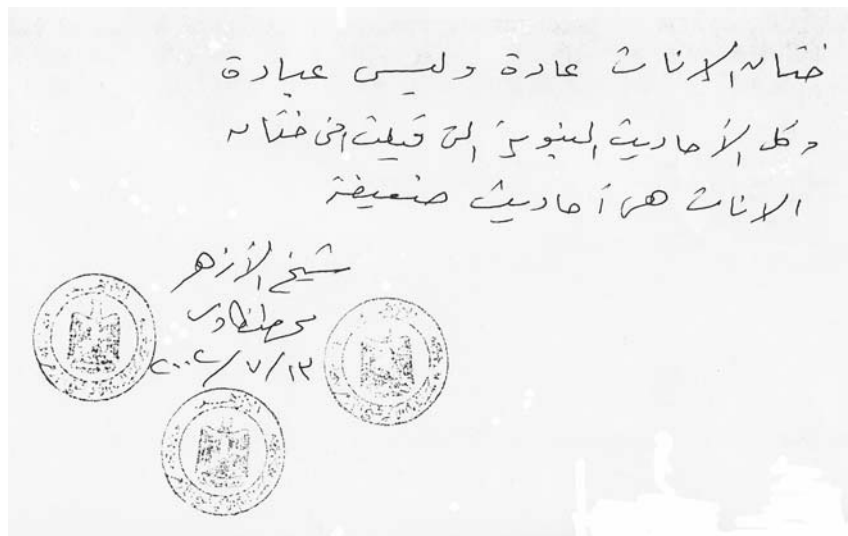 ختان الاناث عادة وليس عبادة
وكل الأحاديث النبوية التى قيلت فى ختان
الاناث هى أحاديث ضعيفة
شيخ الأزهر
محمد طنطاوى
٢٠٠٢/٧/١٣